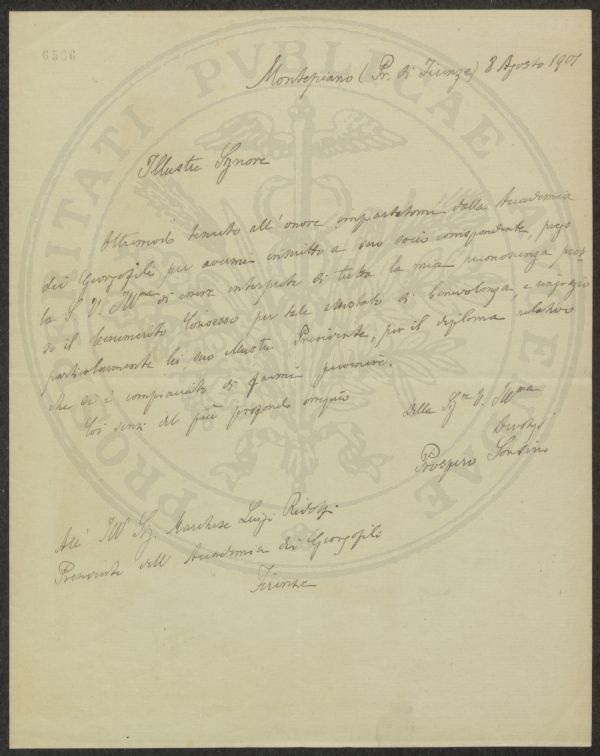 6566
Montepiano (Pr. di Firenze) 8 Agosto 1901
Illustre Signore
Oltremodo tenuto all'onore impartitomi dalla Accademia
dei Georgofili per avermi inscritto a suo socio corrispondente, prego
la S. V. Ill.ma di essere interprete di tutta la mia riconoscenza pres-
so il benemerito Consesso per tale attestato di benevolenza, e ringrazio
particolarmente lei suo illustre Presidente, per il diploma relativo
che si è compiaciuto di farmi pervenire.
Coi sensi del più profondo ossequio
Della Sg.ra V. Ill.ma
Prospero Sonsino
All' Ill Sg. Marchese Luigi Ridolfi
Presidente dell'Accademia dei Georgofili
Firenze
PROSPERITATI PUBLICAE AUGENDAE